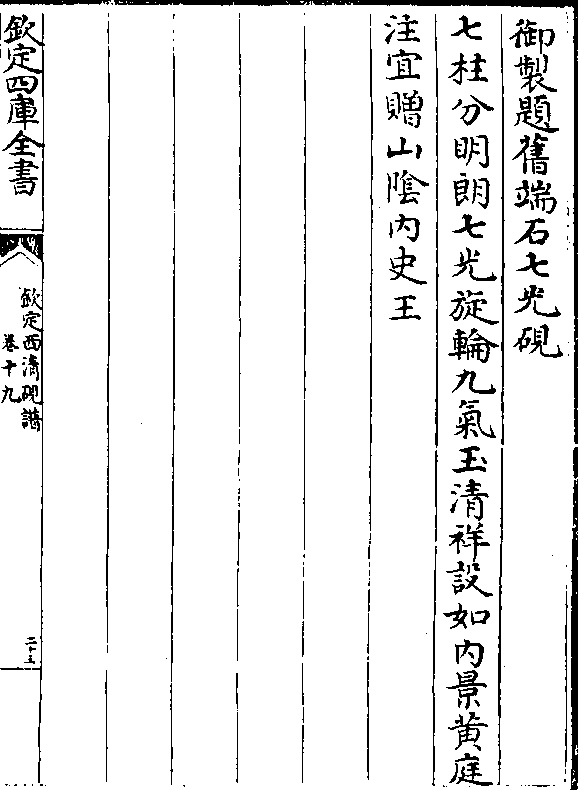 御製題舊端石七光硯
七柱分明朗七光旋輪九氣玉清祥設如内景黄庭
注宜贈山陰内史王
欽定四庫全書
欽定西清硯譜
卷十九
二十五